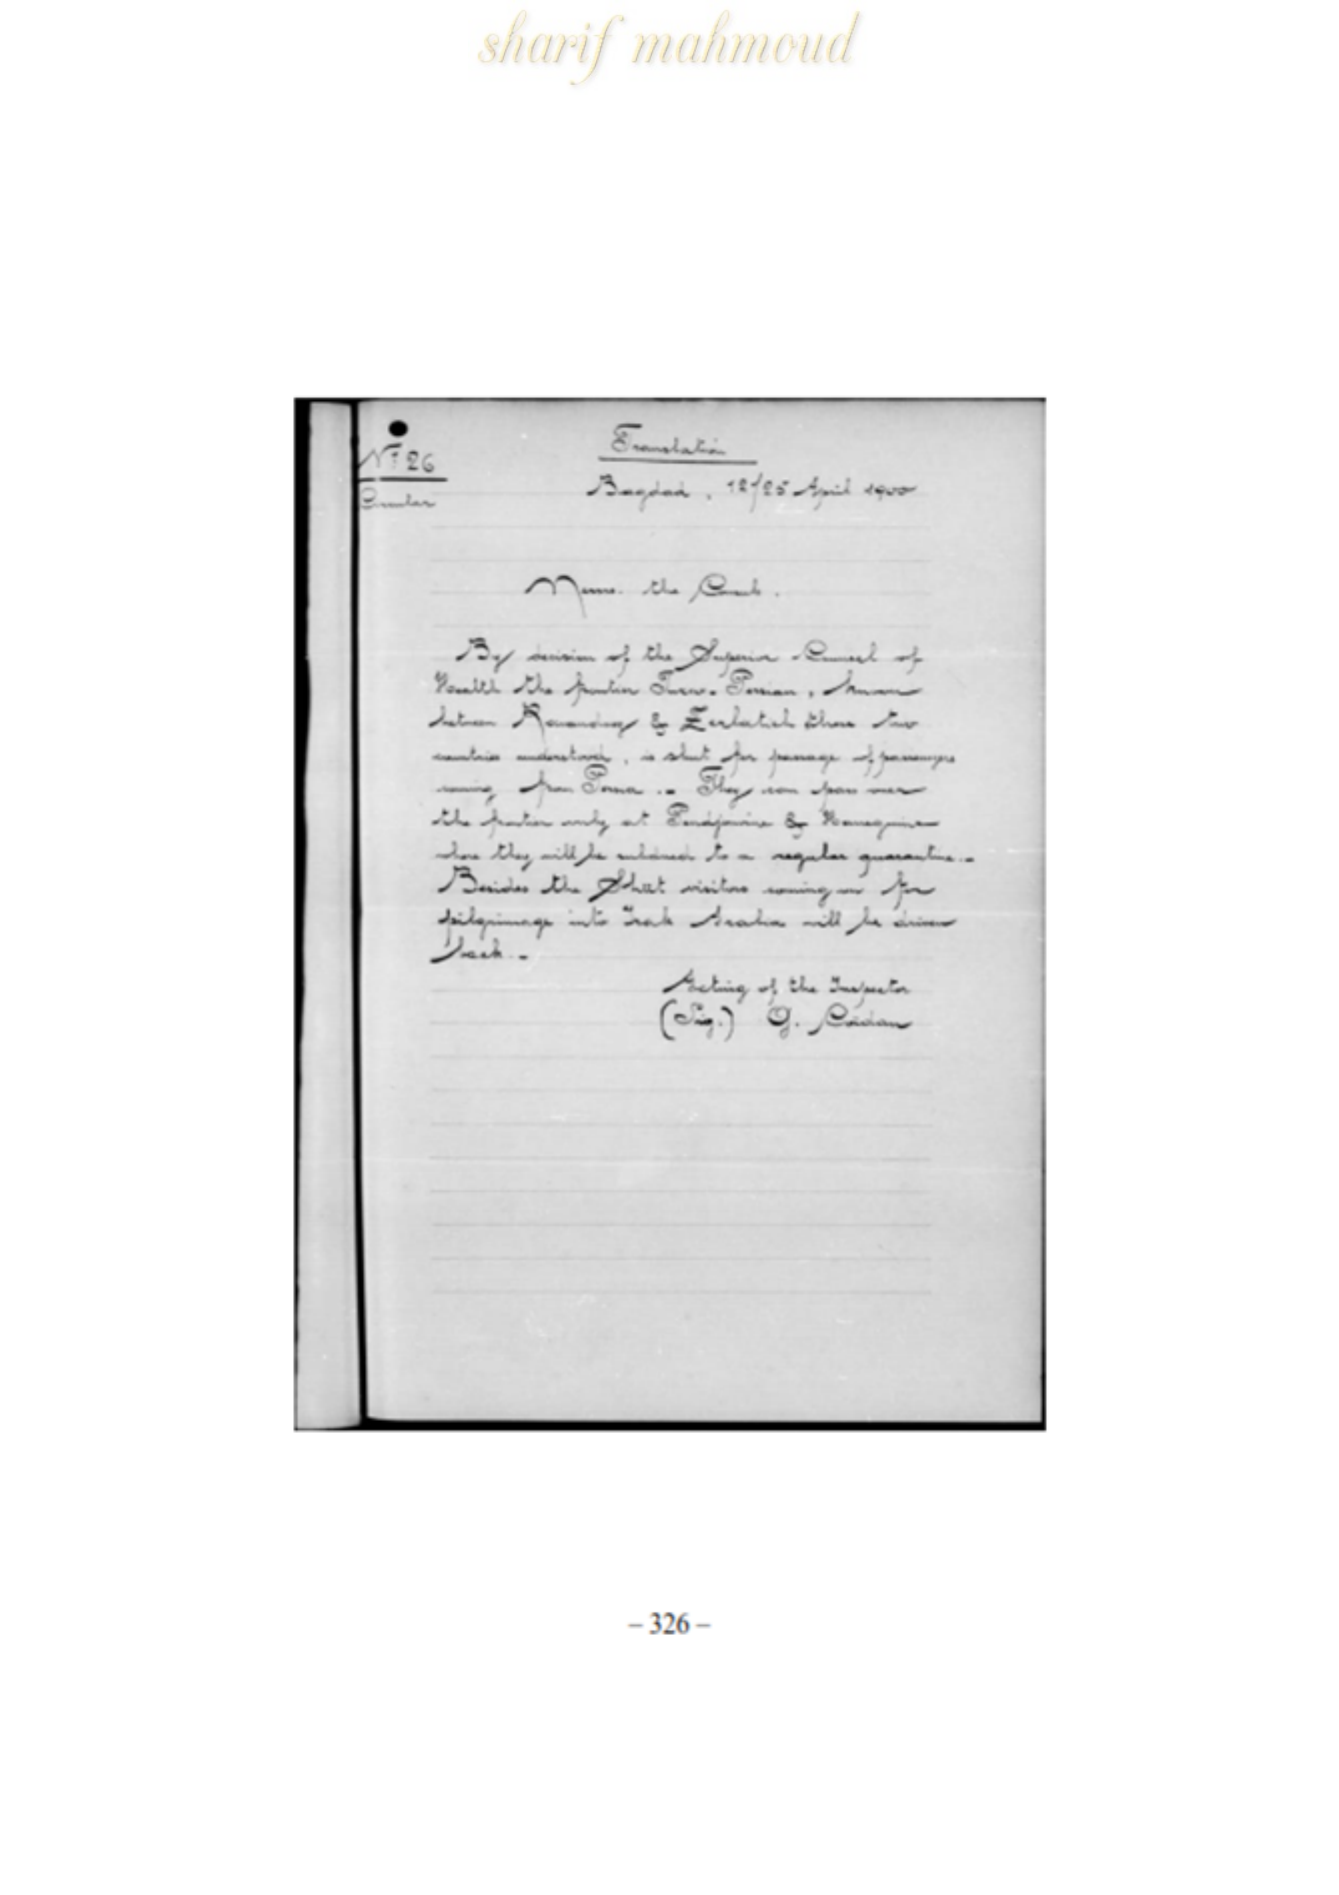 sharif mahmoud
Translation
Nº 26
Circular
Bagdad, 12/25 April 1900
the Consul.
By decision of the Superior Council of
Health the frontier Turco-Persian, known
between & these two
countries understood, is shut for passage of passengers
coming from Persia.- They can pass over
the frontier only at Pendjouine &
where they will be to a regular quarantine.-
Besides the visitors coming for
pilgrimage into Irak Arabia will be driven
back.-
Acting of the Inspector
(Sig.) G.
– 326 –